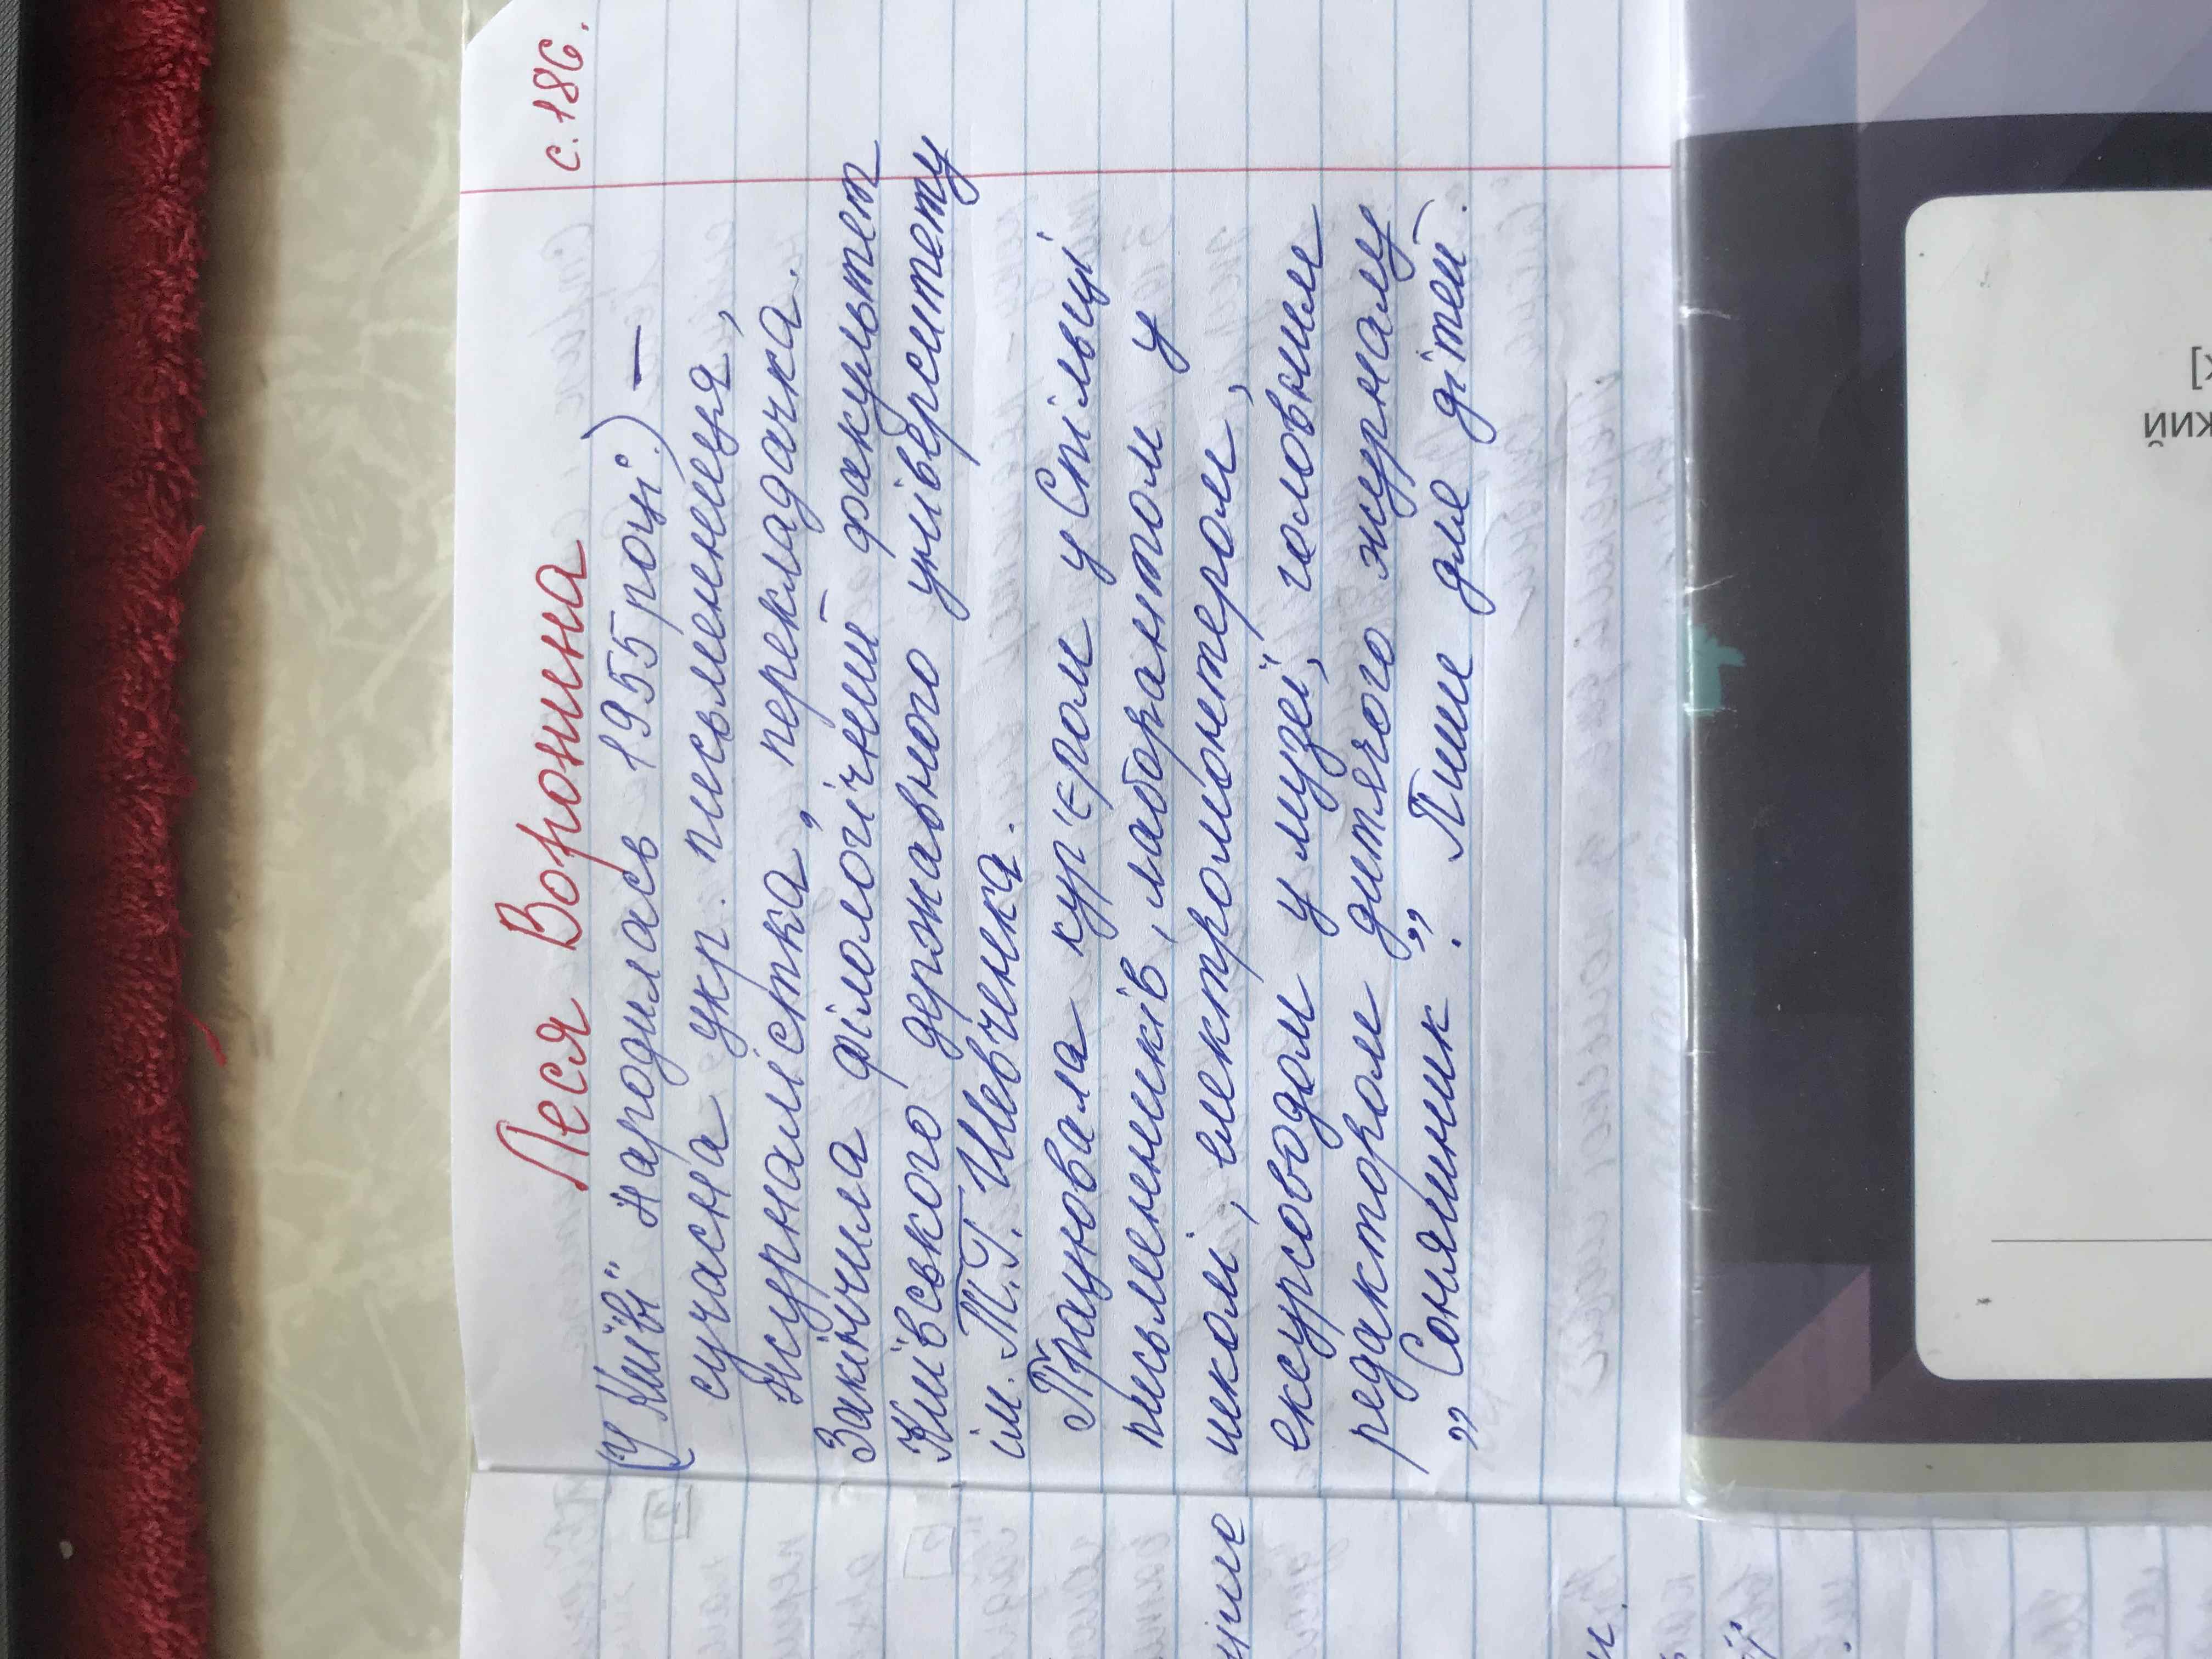 с. 186.
Леся Воронина
(У Київі" народилась 1955 році.) —
сучасна укр. письменниця,
журналістка, перекладачка.
Закінчила філологічний факультет
Київського державного університету
ім. Т.Г. Шевченка.
Працювала кур'єром у Спільці
письменників, лаборантом у
школі, електромонтером,
екскурсоводом у музеї, головним
редактором дитячого журналу
„Соняшник". Пише для дітей.